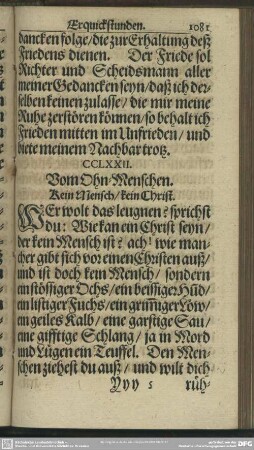 Erquickstunden. 1081
dancken folge/die zur Erhaltung deß
Friedens dienen. Der Friede sol
Richter und Scheidsmann aller
meiner Gedancken seyn/daß ich der-
selben keinen zulasse/die mir meine
Ruhe zerstören können/so behalt ich
Frieden mitten im Unfrieden/und
biete meinem Nachbar trotz.
CCLXXII.
Vom Ohn-Menschen.
Kein Mensch/kein Christ.
WEr wolt das leugnen? sprichst
du: Wie kan ein Christ seyn/
der kein Mensch ist? ach! wie man-
cher gibt sich vor einen Christen auß/
und ist doch kein Mensch/sondern
ein stössiger Ochs/ein beissiger Hüd/
ein listiger Fuchs/ein grimmiger Löw/
ein geiles Kalb/eine garstige Sau/
eine gifftige Schlang/ja in Mord
und Lügen ein Teuffel. Den Men-
schen ziehest du auß/und wilt dich
Yyy 5 rüh-